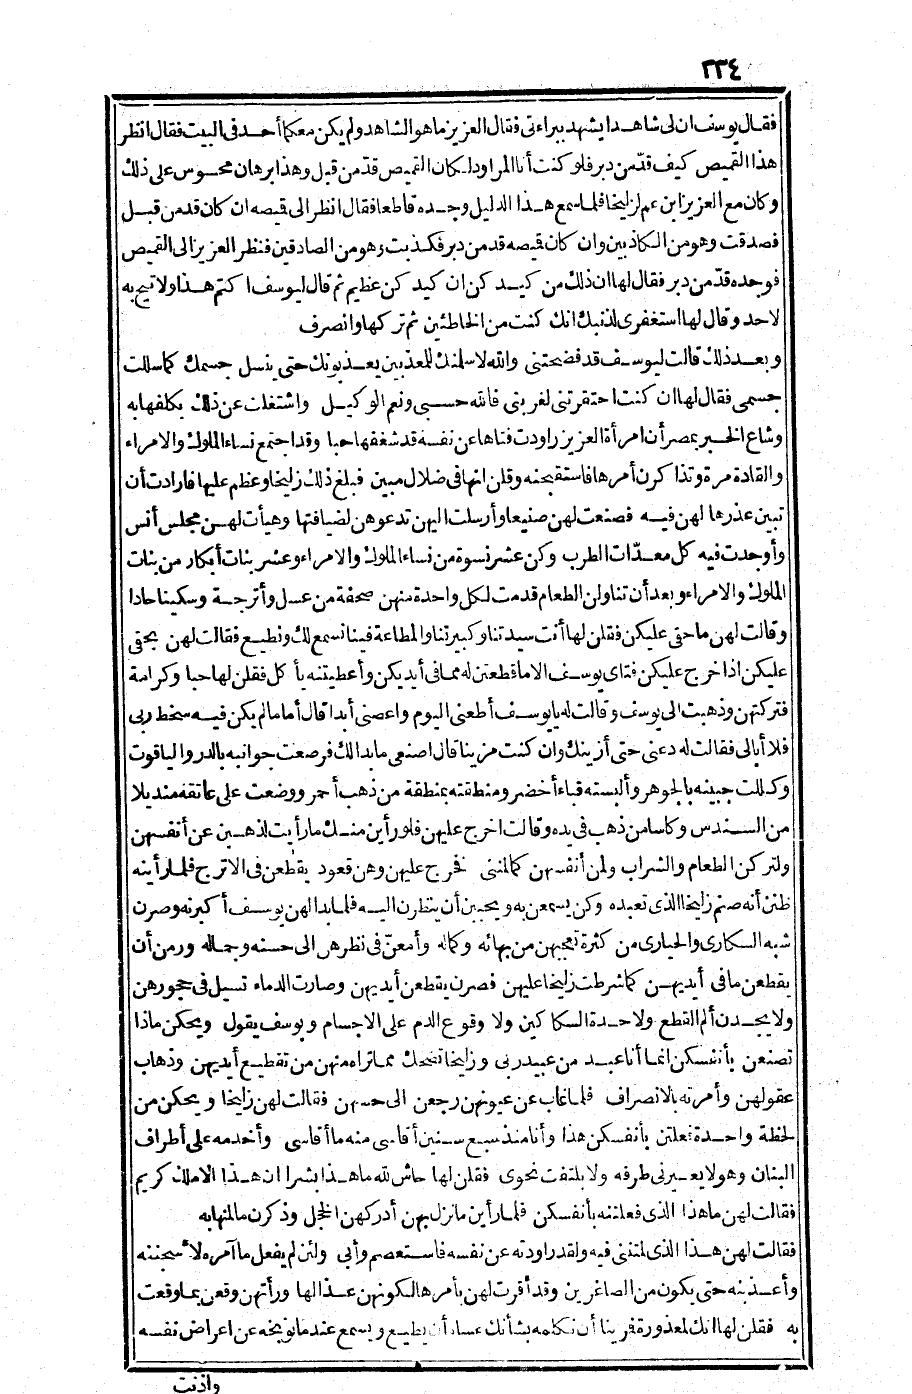 ٢٣٤
فقال يوسف ان لى شاهدا يشهد ببراءتى فقال العزيز ما هو الشاهد ولم يكن معكما أحد فى البيت فقال انظر
هذا القميص كيف قدّ من دبر فلو كنت أنا المراود لكان القميص قدّ من قبل وهذا برهان محسوس على ذلك
وكان مع العزيز ابن عم لزليخا فلما سمع هذا الدليل وجده قاطعا فقال انظر الى قميصه ان كان قد من قبل
فصدقت وهو من الكاذبين وان كان قميصه قد من دبر فكذبت وهو من الصادقين فنظر العزيز الى القميص
فوجده قدّ من دبر فقال لها ان ذلك من كيدكن ان كيدكن عظيم ثم قال ليوسف اكتم هذا ولا تبح به
لاحد وقال لها استغفرى لذنبك انك كنت من الخاطئين ثم تركها وانصرف
وبعد ذلك قالت ليوسف قد فضحتنى والله لاسلمنك للمعذبين يعذبونك حتى ينسل جسمك كما سللت
جسمى فقال لها ان كنت احتقرتنى لغربتى فالله حسبى ونعم الوكيل واشتغلت عن ذلك بكلفها به
وشاع الخبر بمصر أن امرأة العزيز راودت فتاها عن نفسه قد شغفها حبا وقد اجتمع نساء الملوك والامراء
والقادة مرة وتذاكرن أمرها فاستقبحنه وقلن انها فى ضلال مبين فبلغ ذلك زليخا وعظم عليها فارادت أن
تبين عذرها لهن فيه فصنعت لهن صنيعا وأرسلت اليهن تدعوهن لضيافتها وهيأت لهن مجلس أنس
وأوجدت فيه كل معدّات الطرب وكن عشر نسوة من نساء الملوك والامراء وعشر بنات أبكار من بنات
الملوك والامراء وبعد أن تناولن الطعام قدمت لكل واحدة منهن صحفة من عسل وأترجة وسكينا حادا
وقالت لهن ما حقى عليكن فقلن لها أنت سيدتنا وكبيرتنا والمطاعة فينا نسمع لك ونطيع فقالت لهن بحقى
عليكن اذا خرج عليكن فتاى يوسف الا ما قطعتن له مما فى أيديكن وأعطيتنه يأكل فقلن لها حبا وكرامة
فتركتهن وذهبت الى يوسف وقالت له يا يوسف أطعنى اليوم واعصنى أبدا قال أما ما لم يكن فيه سخط ربى
فلا أبالى فقالت له دعنى حتى أزينك وان كنت مزينا قال اصنعى ما بدا لك فرصعت جوانبه بالدر والياقوت
وكللت جبينه بالجوهر وألبسته قباء أخضر ومنطقته بمنطقة من ذهب أحمر ووضعت على عاتقه منديلا
من السندس وكاسا من ذهب فى يده وقالت اخرج عليهن فلو رأين منك ما رأيت لذهبن عن أنفسهن
ولتركن الطعام والشراب ولمن أنفسهن كما لمننى فخرج عليهن وهن قعود يقطعن فى الاترج فلما رأينه
ظنن أنه صنم زليخا الذى تعبده وكن يسمعن به ويحببن أن ينظرن اليه فلما بدا لهن يوسف أكبرنه وصرن
شبه السكارى والحيارى من كثرة تعجبهن من بهائه وكماله وأمعنّ فى نظرهن الى حسنه وجماله ورمن أن
يقطعن ما فى أيديهن كما شرطت زليخا عليهن فصرن يقطعن أيديهن وصارت الدماء تسيل فى حجورهن
ولا يجدن ألم القطع ولا حدة السكاكين ولا وقوع الدم على الاجسام ويوسف يقول ويحكن ماذا
تصنعن بأنفسكن انما أنا عبد من عبيد ربى وزليخا تضحك مما تراه منهن من تقطيع أيديهن وذهاب
عقولهن وأمرته بالانصراف فلما غاب عن عيونهن رجعن الى حسهن فقالت لهن زليخا ويحكن من
لحظة واحدة فعلتن بأنفسكن هذا وأنا منذ سبع سنين أقاسى منه ما أقاسى وأخدمه على أطراف
البنان وهو لا يعيرنى طرفه ولا يلتفت نحوى فقلن لها حاش لله ما هذا بشرا ان هذا الا ملك كريم
فقالت لهن ما هذا الذى فعلتنه بأنفسكن فلما رأين ما نزل بهن أدركهن الخجل وذكرن ما لمنها به
فقالت لهن هذا الذى لمتننى فيه ولقد راودته عن نفسه فاستعصم وأبى ولئن لم يفعل ما آمره لأسجننه
وأعذبنه حتى يكون من الصاغرين وقد أقرت لهن بأمرها لكونهن عذالها ورأتهن وقعن بما وقعت
به فقلن لها انك لمعذورة فرينا أن نكلمه بشأنك عساه أن يطيع ويسمع عندما نوبخه عن اعراض نفسه
واذنت